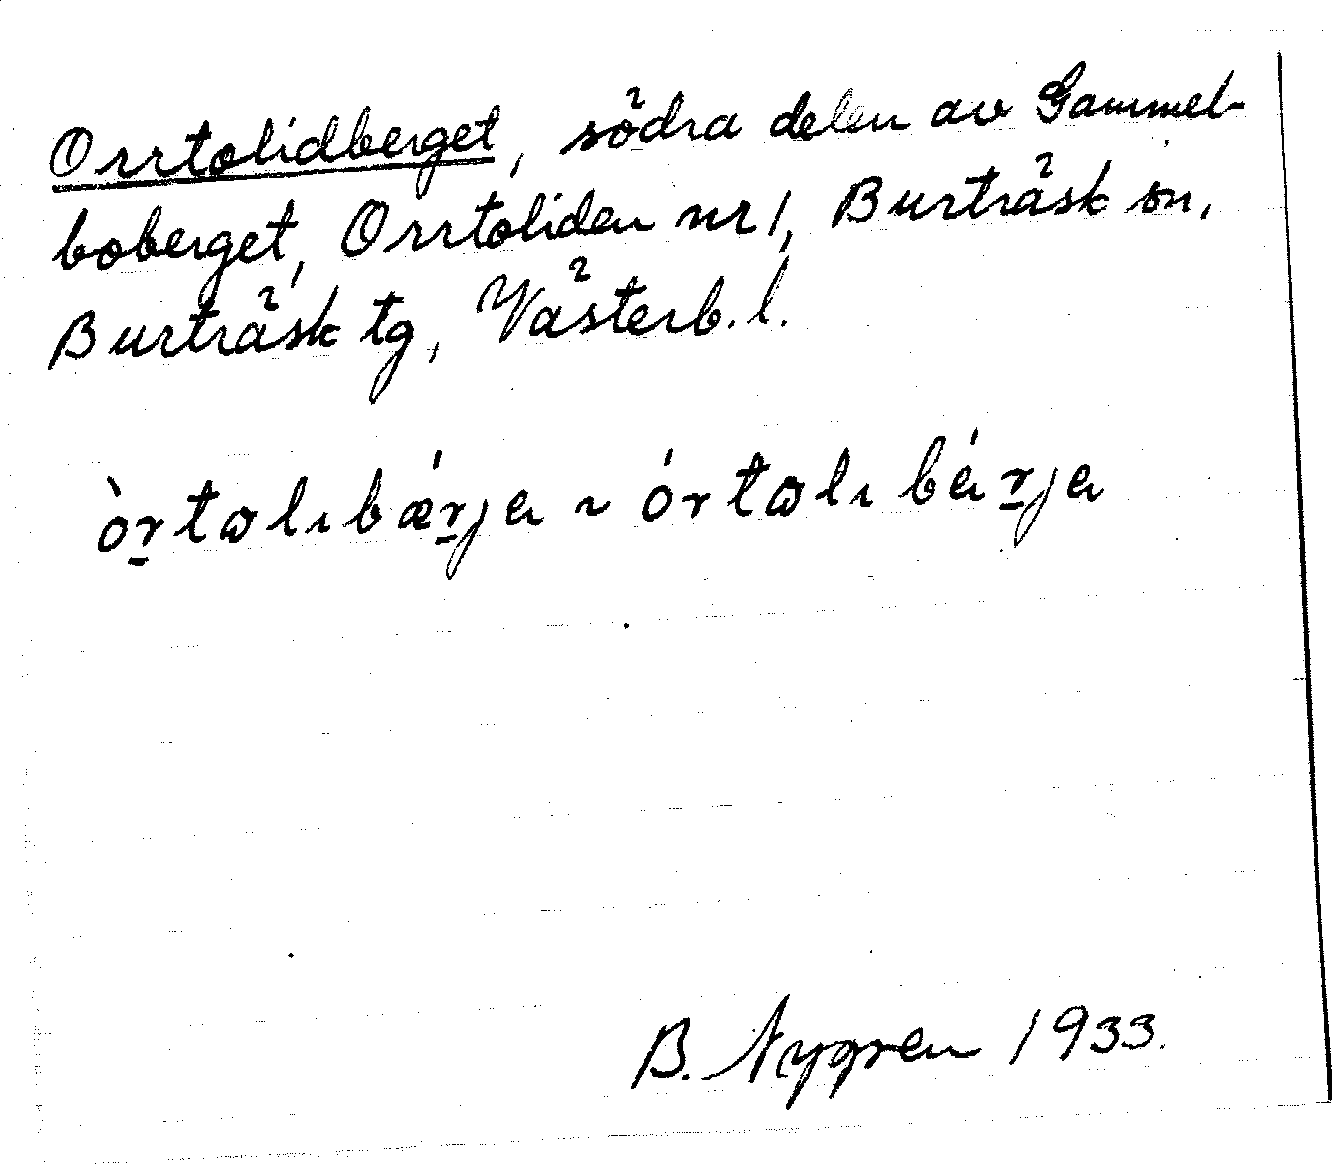 Orrtolidberget, södra delen av Gammel-
boberget, Orrtoliden nr 1, Burträsk sn,
Burträsk tg, Västerb. l.
òr̠tɷlıbǽr̠ja ~ órtɷlıbár̠ja
B. Nygren 1933.